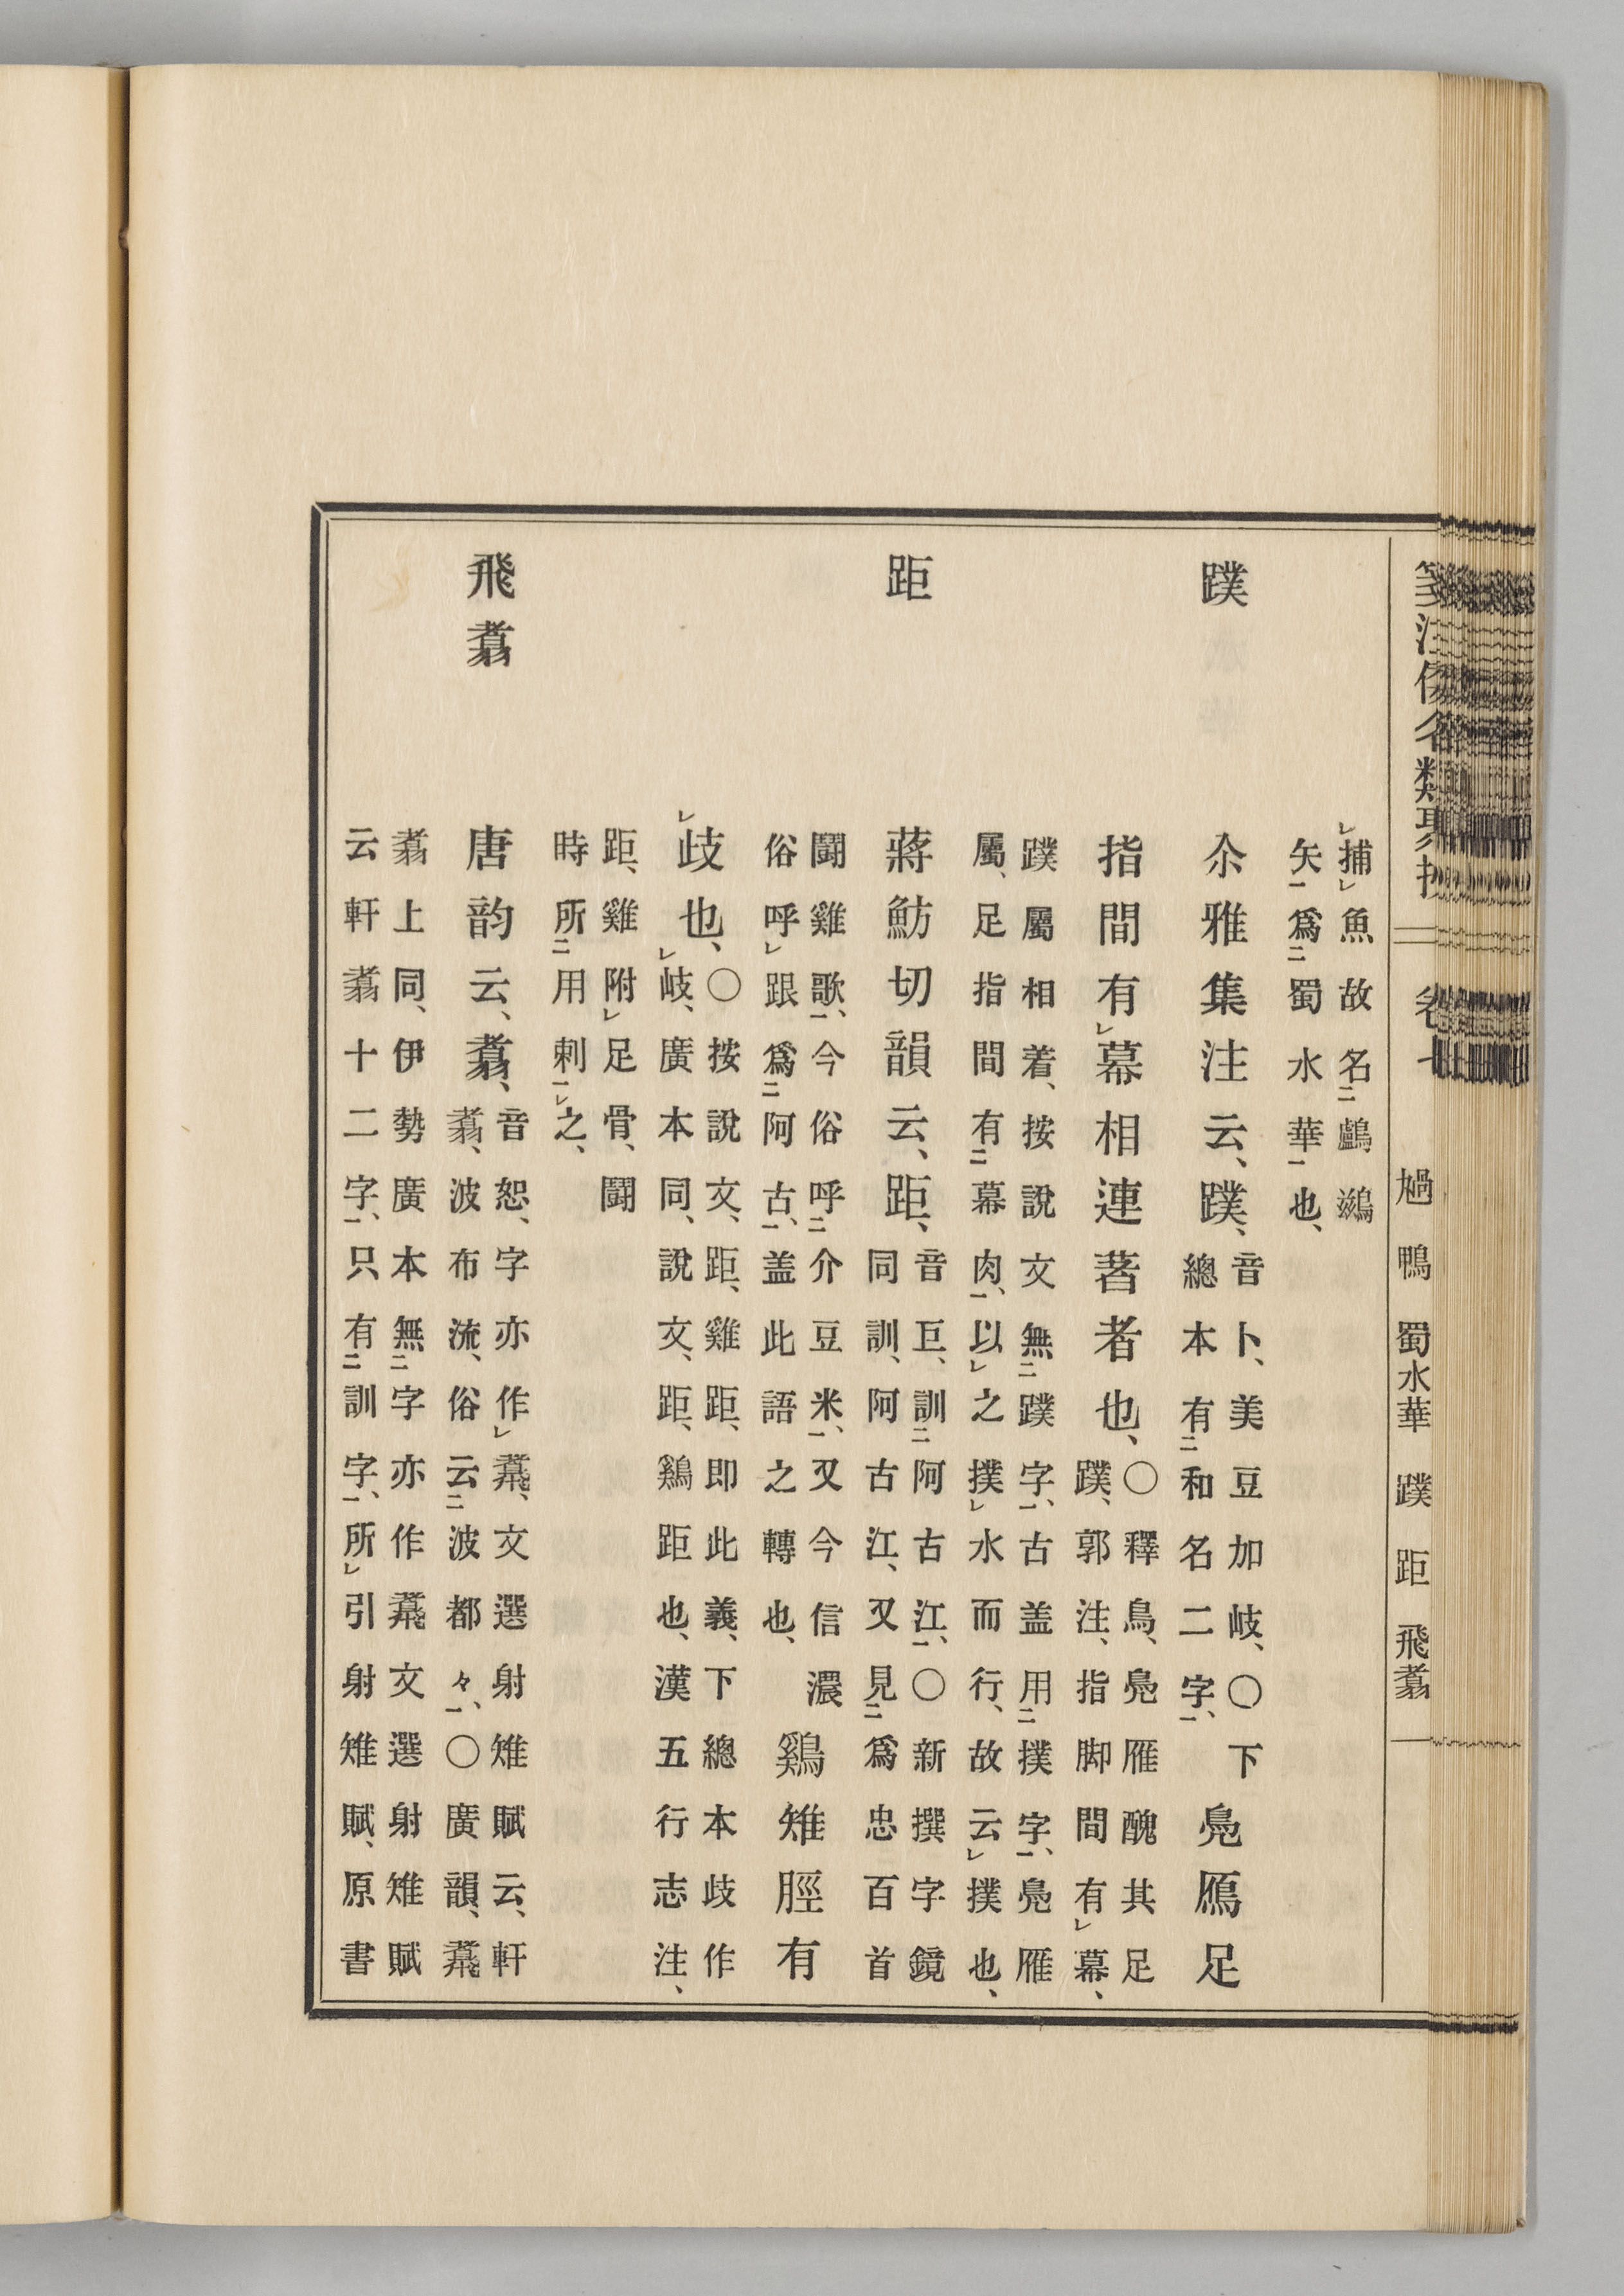 箋注倭名類聚抄 卷七 鴨 蜀水華 蹼 距 飛翥
捕魚故名鸕鷀
矢爲蜀水華也、
蹼 尒雅集注云、蹼、
音卜、美豆加岐、〇下
總本有和名二字、
鳧鴈足
指間有幕相連著者也、
〇釋鳥、鳧雁醜其足
蹼、郭注、指脚間有幕、
蹼屬相着、按說文無蹼字、古盖用撲字、鳧雁
屬、足指間有幕肉、以之撲水而行、故云撲也、
距 蔣魴切韻云、距、
音巨、訓阿古江、〇新撰字鏡
同訓、阿古江、又見爲忠百首
鬪雞歌、今俗呼介豆米、又今信濃
俗呼跟爲阿古、盖此語之轉也、
鷄雉脛有
歧也、
〇按說文、距、雞距、即此義、下總本歧作
岐、廣本同、說文、距、鷄距也、漢五行志注、
距、雞附足骨、鬪
時所用刺之、
飛翥 唐韵云、翥、
音恕、字亦作䬡、文選射雉賦云、軒
翥、波布流、俗云波都々、〇廣韻、䬡
翥上同、伊勢廣本無字亦作䬡文選射雉賦
云軒翥十二字、只有訓字、所引射雉賦、原書